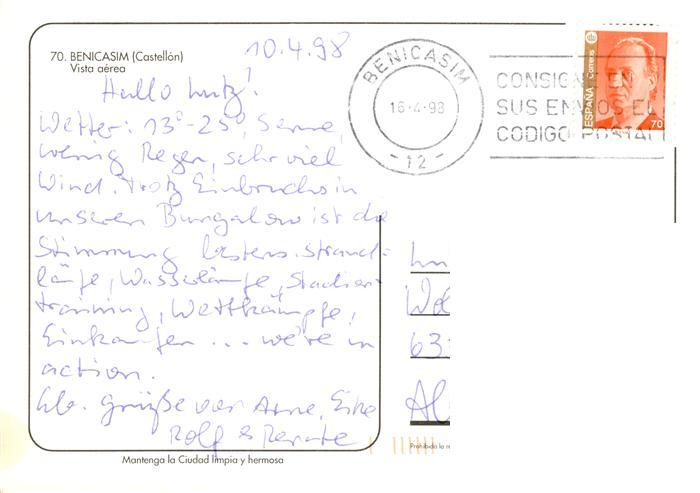 70. BENICASIM (Castellón)
Vista aérea
10.4.98
Hallo Lutz!
Wetter: 13°-25°, Sonne,
wenig Regen, sehr viel
Wind. Trotz Einbruchs in
unseren Bungalow ist die
Stimmung bestens. Strand-
läufe, Wasserkämpfe,
training, Wettkämpfe,
Einkaufen ... we're in
action.
Lb. Grüße von Arne, Eike
Rolf & Renate
Mantenga la Ciudad limpia y hermosa
BENICASIM
16-4-98
-12-
CONSIGNE EN
SUS ENVIOS EL
CODIGO POSTAL
ESPAÑA
Correos
70
63
Al
Prohibida la re